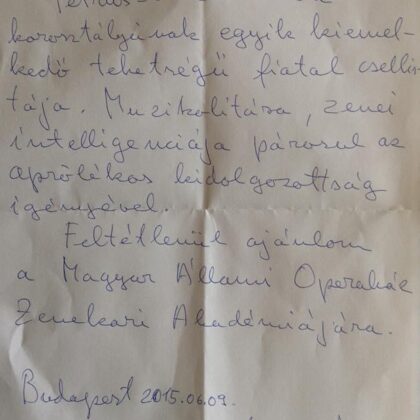 korosztályának egyik kiemel-
kedő tehetségű fiatal csellis-
tája. Muzikalitása, zenei
intelligenciája párosul az
aprólékos kidolgozottság
igényével.
Feltétlenül ajánlom
a Magyar Állami Operaház
Zenekari Akadémiájára.
Budapest 2015.06.09.